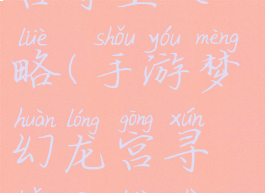 lüè shǒu yóu mèng
略(手游梦
huàn lóng gōng xún
幻龙宫寻